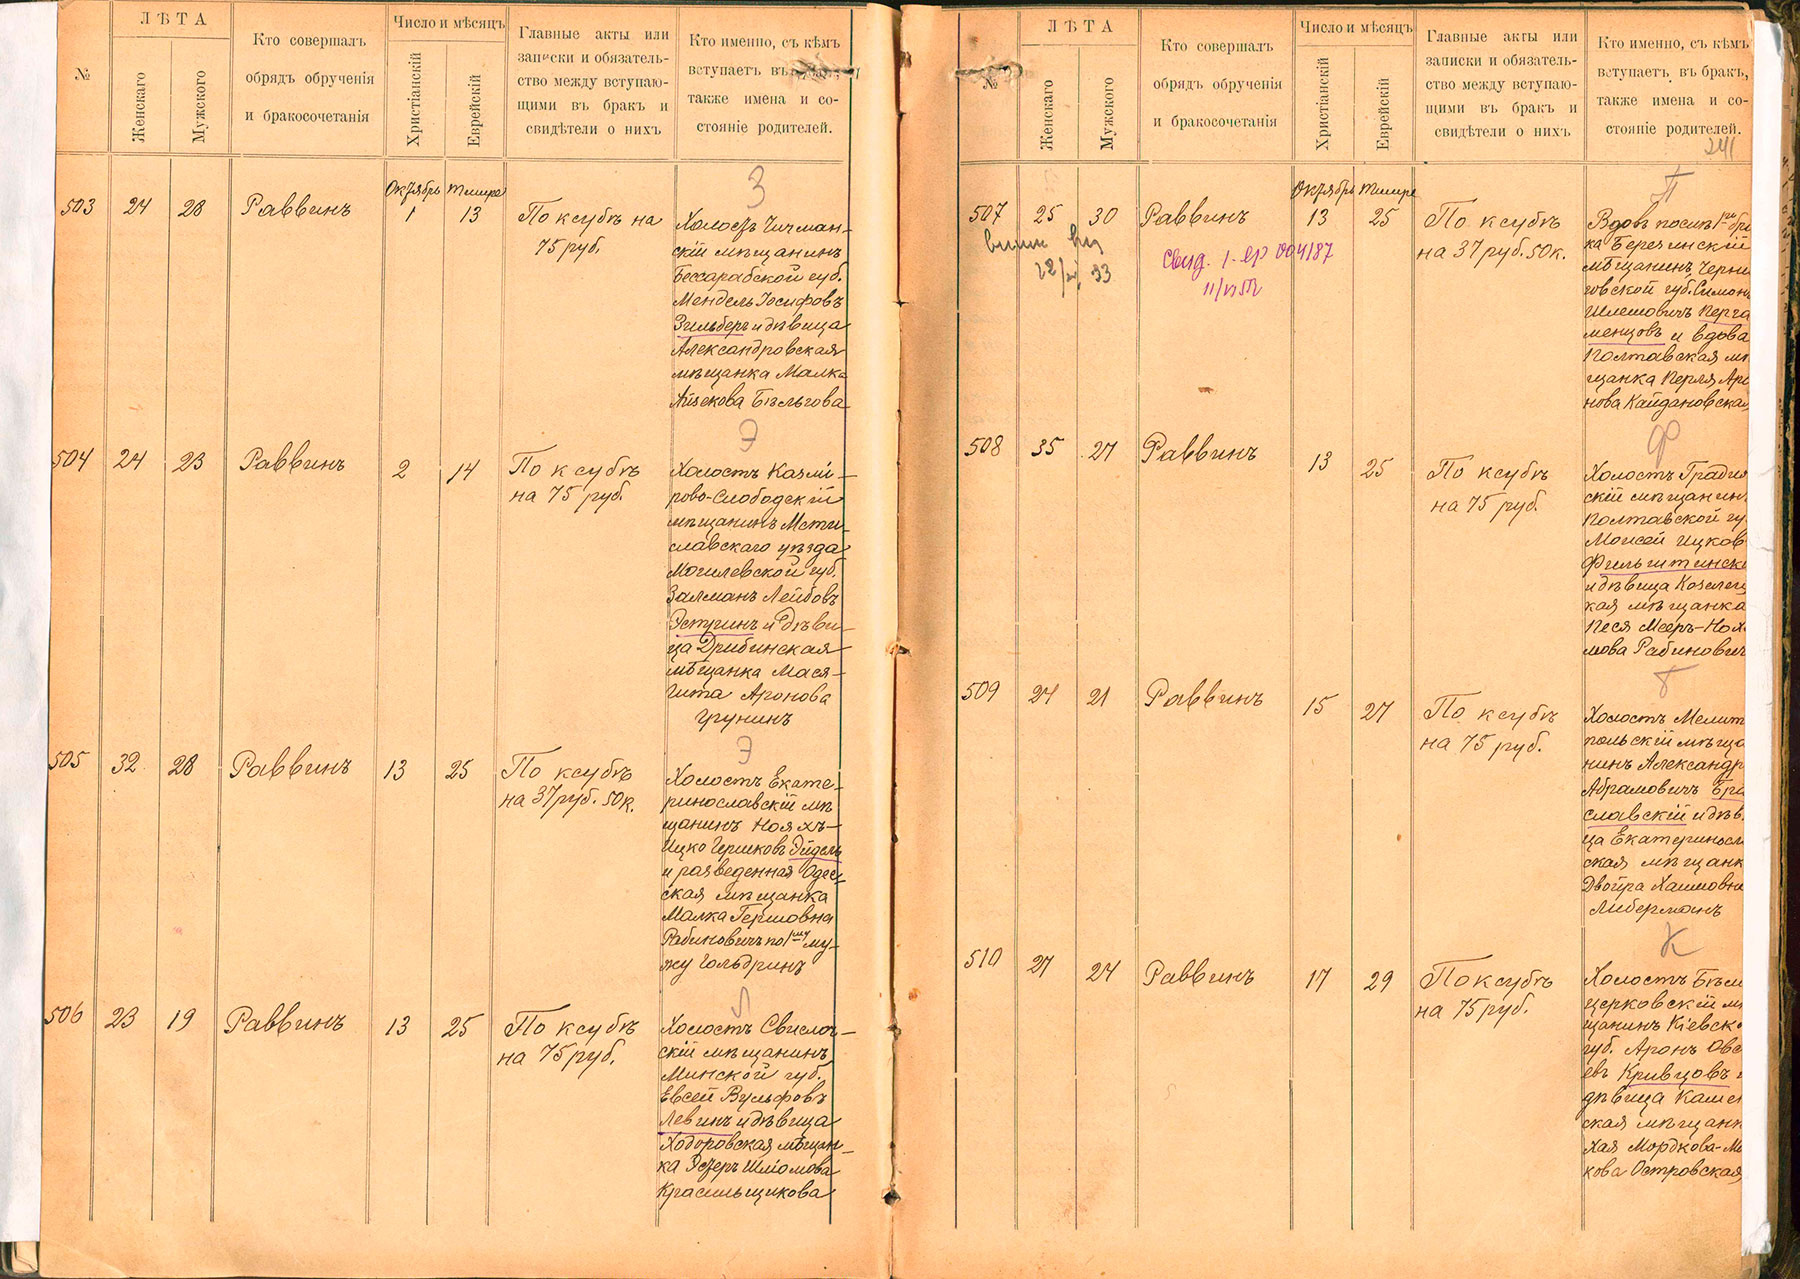 №
ЛѢТА
Женскаго
Мужского
Кто совершалъ
обрядъ обрученія
и бракосочетанія
Число и мѣсяцъ
Христіанскій
Еврейскій
Главные акты или
записки и обязатель-
ство между вступаю-
щими въ бракъ и
свидѣтели о нихъ
Кто именно, съ кѣмъ
вступаетъ въ
также имена и со-
стояніе родителей.
З
503 24 28 Раввинъ
Октябрь Тишре
1 13
По ксубѣ на
75 руб.
Холостъ Чичман-
скій мѣщанинъ
Бессарабской губ.
Мендель Іосифовъ
Зильберъ и дѣвица
Александровская
мѣщанка Малка
Айзекова Бѣльгова
Э
504 24 23 Раввинъ 2 14
По ксубѣ
на 75 руб.
Холостъ Казмі-
рово-Слободскій
мѣщанинъ Мсти-
славскаго уѣзда
Могилевской губ.
Залманъ Лейбовъ
Эстринъ и дѣви-
ца Дрибинская
мѣщанка Мася-
Гита Аронова
Грунинъ
Э
505 32 28 Раввинъ 13 25
По ксубѣ
на 37 руб. 50 к.
Холостъ Екате-
ринославскій мѣ-
щанинъ Нояхъ-
Ицко Гершковъ Эйдель
и разведенная Одес-
ская мѣщанка
Малка Гершовна
Рабиновичъ по 1му му-
жу Гольдринъ
Л
506 23 19 Раввинъ 13 25
По ксубѣ
на 75 руб.
Холостъ Свислоч-
скій мѣщанинъ
Минской губ.
Евсей Вульфовъ
Левинъ и дѣвица
Ходоровская мѣщан-
ка Эстеръ Шліомова
Красильщикова
№
ЛѢТА
Женскаго
Мужского
Кто совершалъ
обрядъ обрученія
и бракосочетанія
Число и мѣсяцъ
Христіанскій
Еврейскій
Главные акты или
записки и обязатель-
ство между вступаю-
щими въ бракъ и
свидѣтели о нихъ
Кто именно, съ кѣмъ
вступаетъ въ бракъ,
также имена и со-
стояніе родителей.
241
П
507 25 30 Раввинъ
Октябрь Тишре
13 25
По ксубѣ
на 37 руб. 50 к.
33
004187
Вдовъ послѣ 1го бра
ка Березинскій
мѣщанинъ Черни
говской губ. Симонъ
Шлемовичъ Перга
менцовъ и вдова
Полтавская мѣ
щанка Перля Аро
нова Кайдановская
Ф
508 35 27 Раввинъ 13 25
По ксубѣ
на 75 руб.
Холостъ Градиж
скій мѣщанин
Полтавской гу
Моисей Ицков
Фильштинск
и дѣвица Козелец
кая мѣщанка
Песя Мееръ-Нох
мова Рабинович
Б
509 24 21 Раввинъ 15 27
По ксубѣ
на 75 руб.
Холостъ Мелит
польскій мѣща
нинъ Александр
Абрамовичъ Бра
славскій и дѣв
ца Екатериносл
ская мѣщанк
Двойра Хаимовн
Либерманъ
К
510 27 24 Раввинъ 17 29
По ксубѣ
на 75 руб.
Холостъ Бѣл
церковскій м
щанинъ Кіевск
губ. Аронъ Овс
евъ Кривцовъ и
дѣвица Камен
ская мѣщанк
Хая Мордкова-М
кова Островская